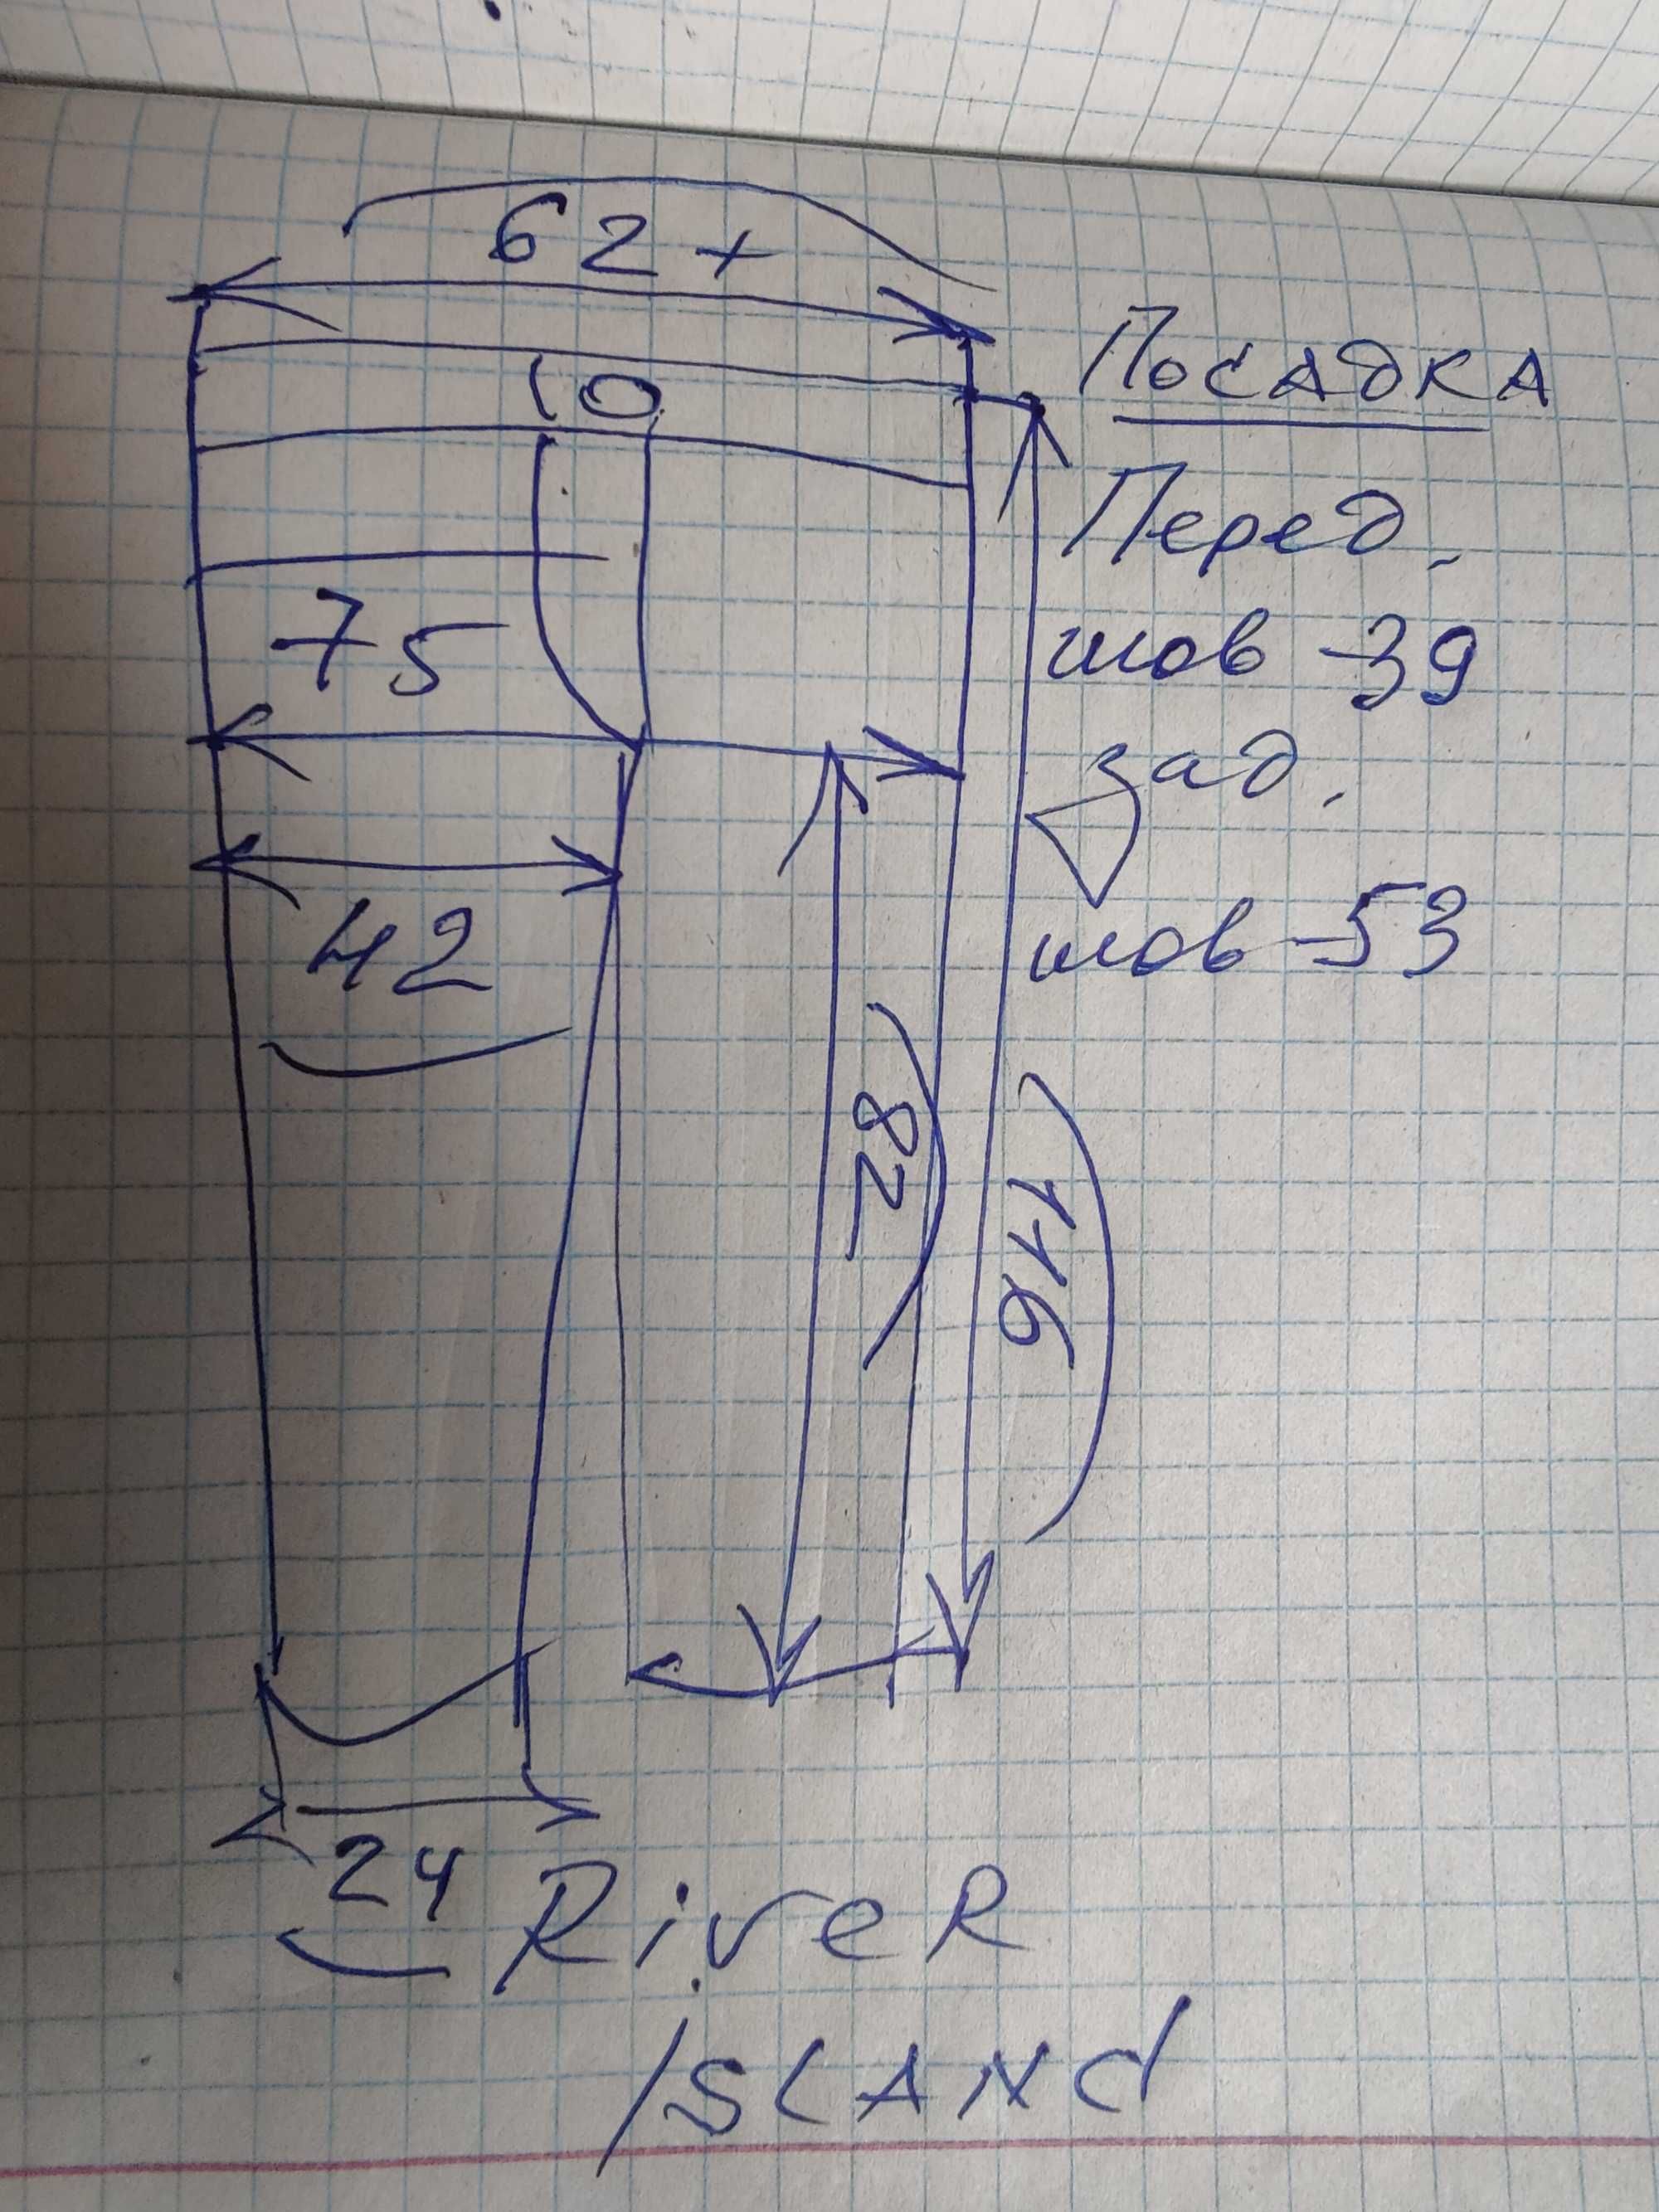 62+
10
Посадка
Перед.
75
шов -39
зад.
42
шов -53
82
116
24
River
Island